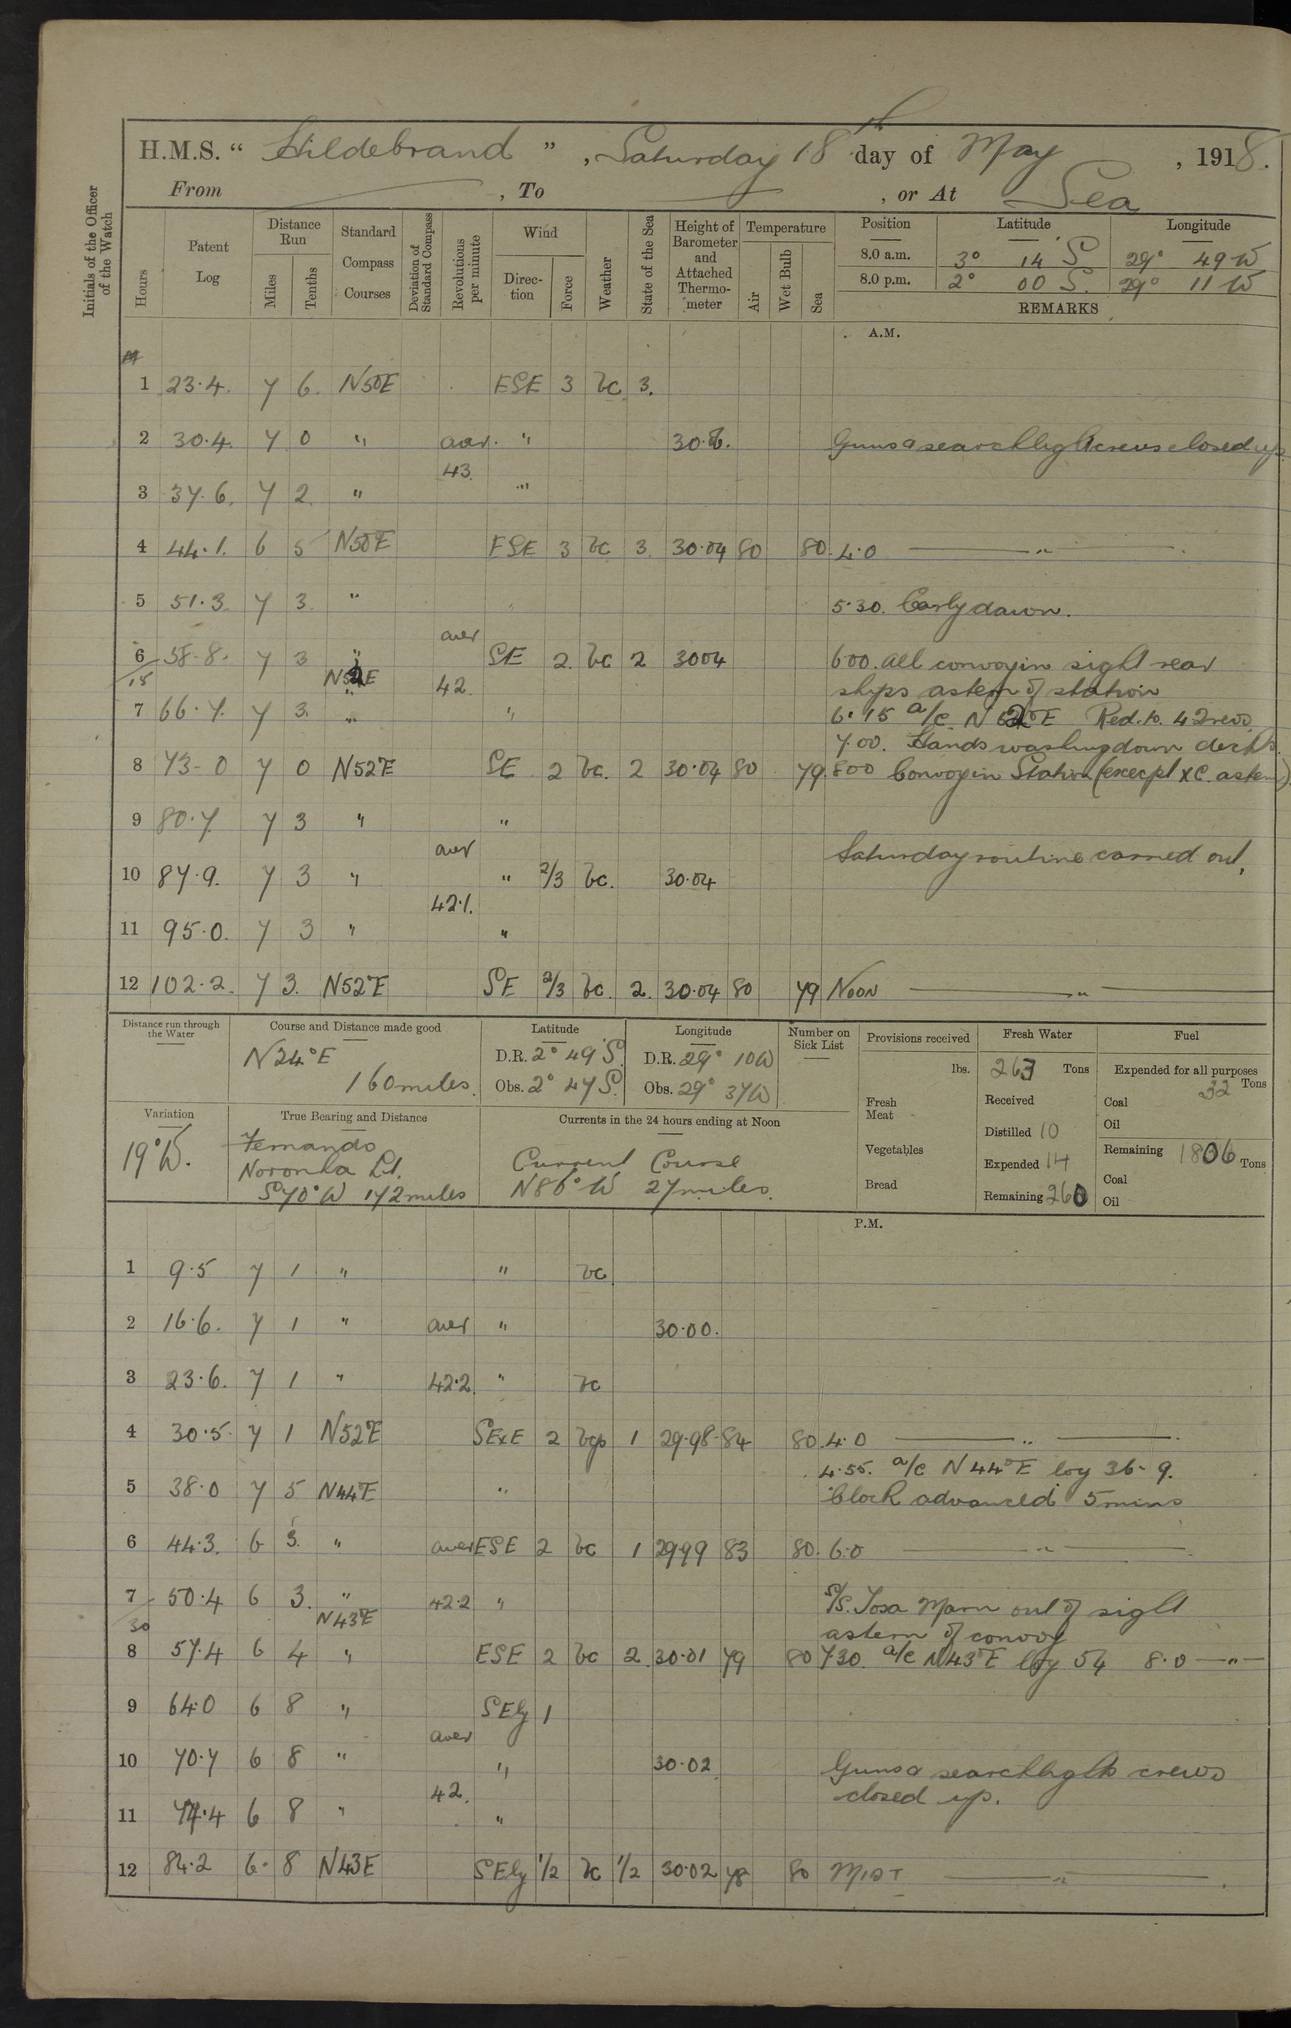 H.M.S. “ Hildebrand ” , Saturday 18th day of May , 1918.
From , To , or At Sea
Initials of the Officer of the Watch
Hours Patent Log Distance Run Miles Tenths Standard Compass Courses Deviation of Standard Compass Revolutions per minute Wind Direction Force Weather State of the Sea Height of Barometer and Attached Thermometer Temperature Air Wet Bulb Sea Position Latitude Longitude
8.0 a.m. 3° 14 S 29° 49 W
8.0 p.m. 2° 00 S. 29° 11 W
REMARKS
A.M.
1 23.4. 7 6. N50E ESE 3 bc 3.
2 30.4. 7 0 " aver. " 30. Guns & searchlight crews closed up.
43.
3 37.6. 7 2 " "
4 44.1. 6 5 N50E ESE 3 bc 3. 30.04 80 80. 4.0 — " —
5 51.3 7 3. " 5.30. Early dawn.
aver
6 58.8. 7 3 " SE 2. bc 2 3004 600. All convoy in sight rear
15 N52E 42. ships astern of station
7 66.7. 7 3. " " 6.15 a/c N 52°E Red. to. 42 revs
7.00. Hands washing down decks.
8 73.0 7 0 N52°E SE 2 bc. 2 30.04 80 79. 800 Convoy in Station (except XC. astern)
9 80.7. 7 3 " "
aver Saturday routine carried out,
10 87.9. 7 3 " " 2/3 bc. 30.04
42.1.
11 95.0. 7 3 " "
12 102.2. 7 3. N52°E SE 2/3 bc. 2. 30.04 80 79 Noon — " —
Distance run through the Water Course and Distance made good Latitude Longitude Number on Sick List Provisions received Fresh Water Fuel
N24°E D.R. 2° 49 S. D.R. 29° 10 W lbs. 263 Tons Expended for all purposes
160 miles. Obs. 2° 47 S. Obs. 29° 37 W Fresh Meat Received Coal 32 Tons
Variation True Bearing and Distance Currents in the 24 hours ending at Noon Distilled 10 Oil
19°W. Fernando Vegetables Expended 14 Remaining 1806 Tons
Noronha Lt. Current Course Coal
S70°W 172 miles N86°W 27 miles. Bread Remaining 260 Oil
P.M.
1 9.5 7 1 " " bc
2 16.6. 7 1 " aver " 30.00.
3 23.6. 7 1 " 42.2 " bc
4 30.5. 7 1 N52°E SExE 2 bcp 1 29.98. 84 80. 4.0 — " —
4.55. a/c N44°E log 36.9.
5 38.0 7 5 N44°E " Clock advanced 5 mins
6 44.3. 6 3. " aver ESE 2 bc 1 2999 83 80. 6.0 — " —
7 50.4 6 3. " 42.2 " S/S. Tosa Maru out of sight
30 N43°E astern of convoy
8 57.4 6 4 " ESE 2 bc 2. 30.01 79 80 730. a/c N43°E log 54 8.0 — " —
9 64.0 6 8 " SEly 1
aver
10 70.7 6 8 " " 30.02 Guns & searchlights crews
42. closed up.
11 77.4 6 8 " "
12 84.2 6. 8 N43E SEly 1/2 bc 1/2 30.02 78 80 MIDT — " —